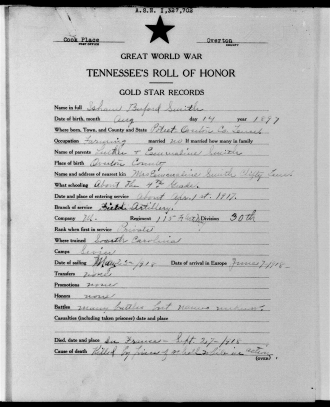 A.S.N. 1,327,702
Cook Place
POST OFFICE
Overton
COUNTY
GREAT WORLD WAR
TENNESSEE'S ROLL OF HONOR
GOLD STAR RECORDS
Name in full Isham Buford Smith
Date of birth, month Aug day 14 year 1897
Where born, Town, and County and State Overton Co
Occupation farming married no If married how many in family
Name of parents Luther & Emmaline Smith
Place of birth Overton County
Name and address of nearest kin Mrs Emmaline Smith
What schooling About the 4th Grade
Date and place of entering service about April 1st. 1917.
Branch of service Field Artillery
Company Regiment Division 30th
Rank when first in service Private
Where trained South Carolina
Camps Sevier
Date of sailing May 1918 Date of arrival in Europe June 1918
Transfers none
Promotions none
Honors none
Battles many battles but names
Casualties (including taken prisoner) date and place
Died, date and place in France Sept. 1918
Cause of death Killed by piece of shell while in action
(OVER)